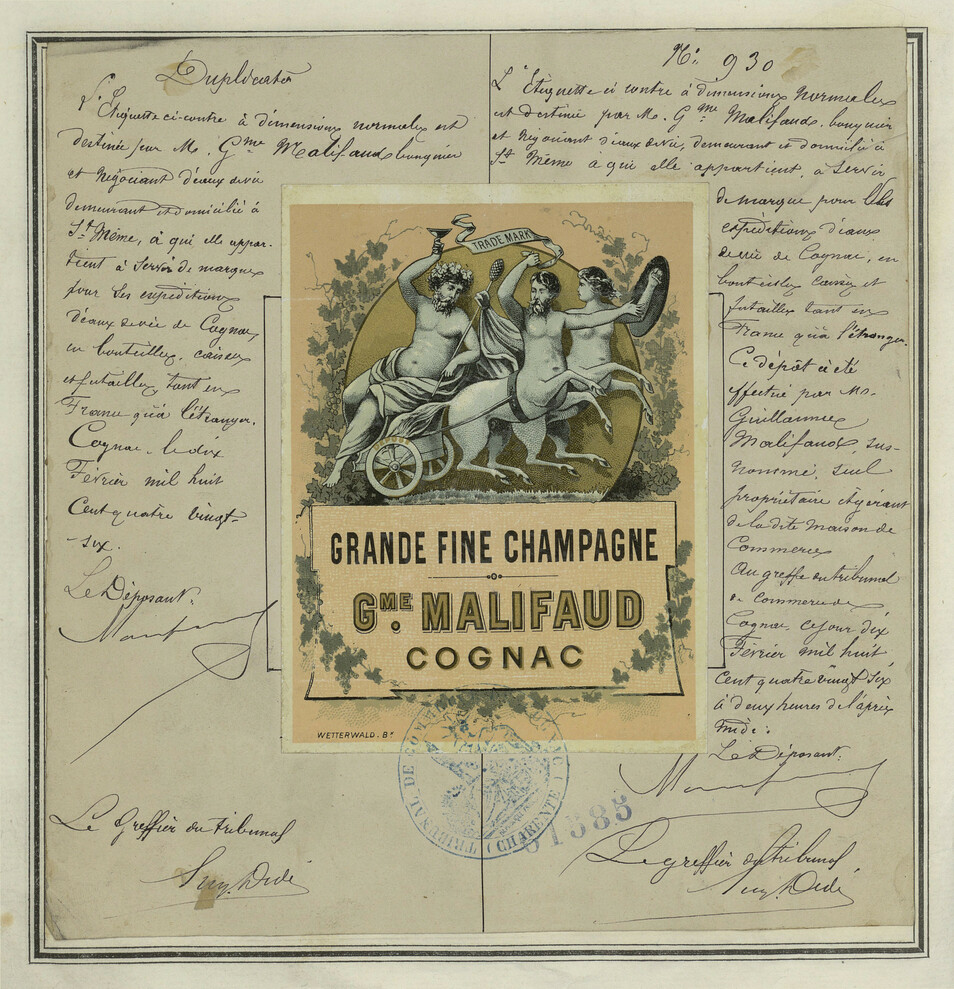 Duplicata
L'Étiquette ci-contre à dimensions normales est
destinée par M. Gme Malifaud bouquier
et Négociant d'eaux de vie
demeurant et domicilié à
St Même, à qui elle appar-
tient à servir de marque
pour ses expéditions
d'eaux de vie de Cognac,
en bouteilles, caisses
et futailles, tant en
France qu'à l'étranger.
Cognac, le dix
Février mil huit
Cent quatre vingt-
-six.
Le Déposant.
Le Greffier du tribunal
No 930
L'Étiquette ci contre à dimensions normales
est destinée par M. Gme Malifaud, bouquier
et Négociant d'eaux de vie, demeurant et domicilié à
St Même à qui elle appartient, à servir
de marque pour les
expéditions d'eaux
de vie de Cognac, en
bouteilles caisses et
futailles tant en
France qu'à l'étranger.
Ce dépôt a été
effectué par M.
Guillaume
Malifaud, sus-
nommé, seul
propriétaire et gérant
de la dite maison de
Commerce
Au greffe du tribunal
de Commerce de
Cognac, ce jour dix
Février mil huit
Cent quatre vingt six
à deux heures de l'après
midi.
Le Déposant.
Le greffier du tribunal
TRADE MARK
GRANDE FINE CHAMPAGNE
GME. MALIFAUD
COGNAC
WETTERWALD. Bx
TRIBUNAL DE COMMERCE COGNAC (CHARENTE)
61585